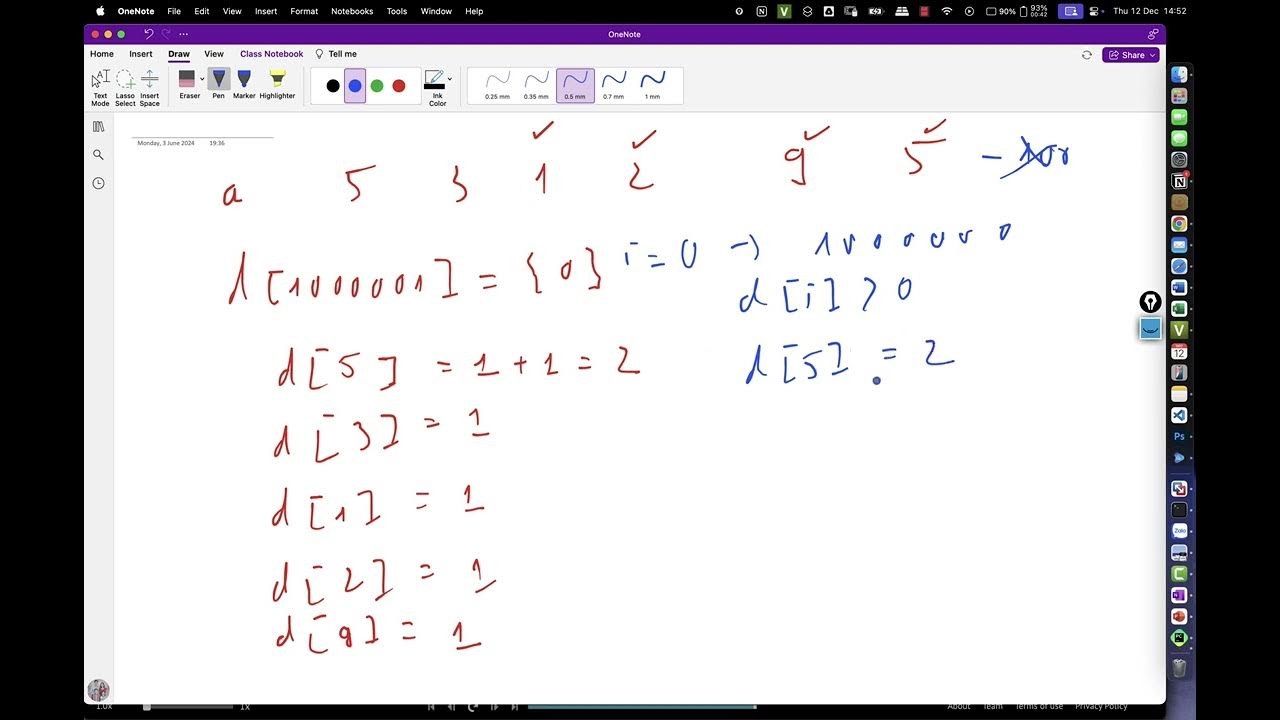 OneNote File Edit View Insert Format Notebooks Tools Window Help 90% 93% 00:42 Thu 12 Dec 14:52
OneNote
Home Insert Draw View Class Notebook Tell me Share
Text Mode Lasso Select Insert Space Eraser Pen Marker Highlighter Ink Color 0.25 mm 0.35 mm 0.5 mm 0.7 mm 1 mm
Monday, 3 June 2024 19:36
a 5 3 1 2 9 5
d[1000001] = {0} i = 0 → 1000000
d[i] > 0
d[5] = 1 + 1 = 2 d[5] = 2
d[3] = 1
d[1] = 1
d[2] = 1
d[9] = 1
1.0x 1x About Team Terms of use Privacy Policy